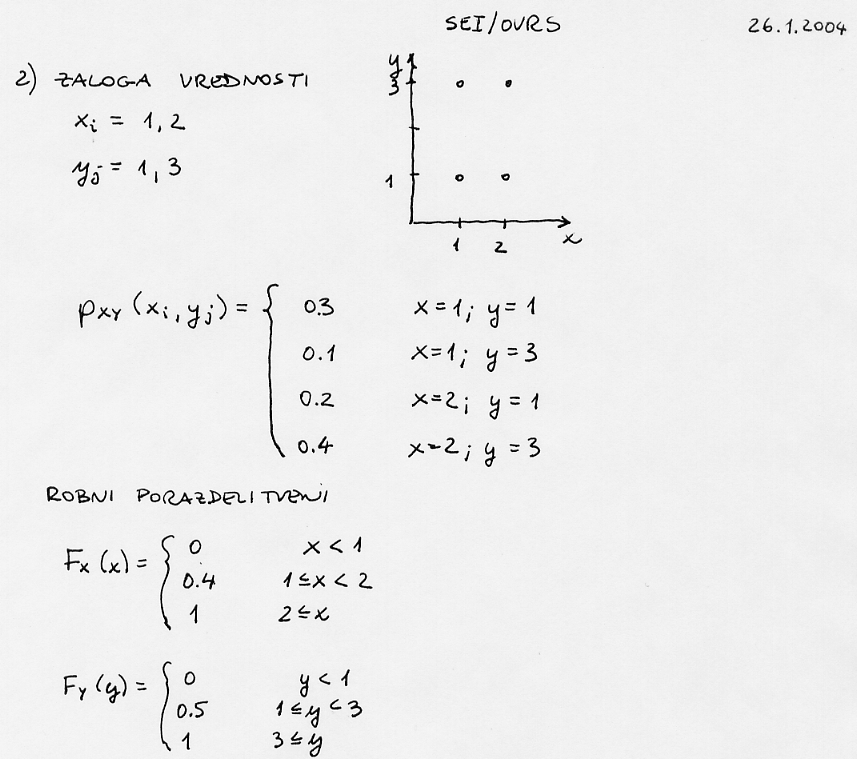 SEI/OVRS 26.1.2004
2) ZALOGA VREDNOSTI
xi = 1, 2
yj = 1, 3
y
3
1
1 2 x
pXY (xi, yj) = { 0.3 x=1; y=1
0.1 x=1; y=3
0.2 x=2; y=1
0.4 x=2; y=3
ROBNI PORAZDELITVENI
FX (x) = { 0 x < 1
0.4 1 ≤ x < 2
1 2 ≤ x
FY (y) = { 0 y < 1
0.5 1 ≤ y < 3
1 3 ≤ y